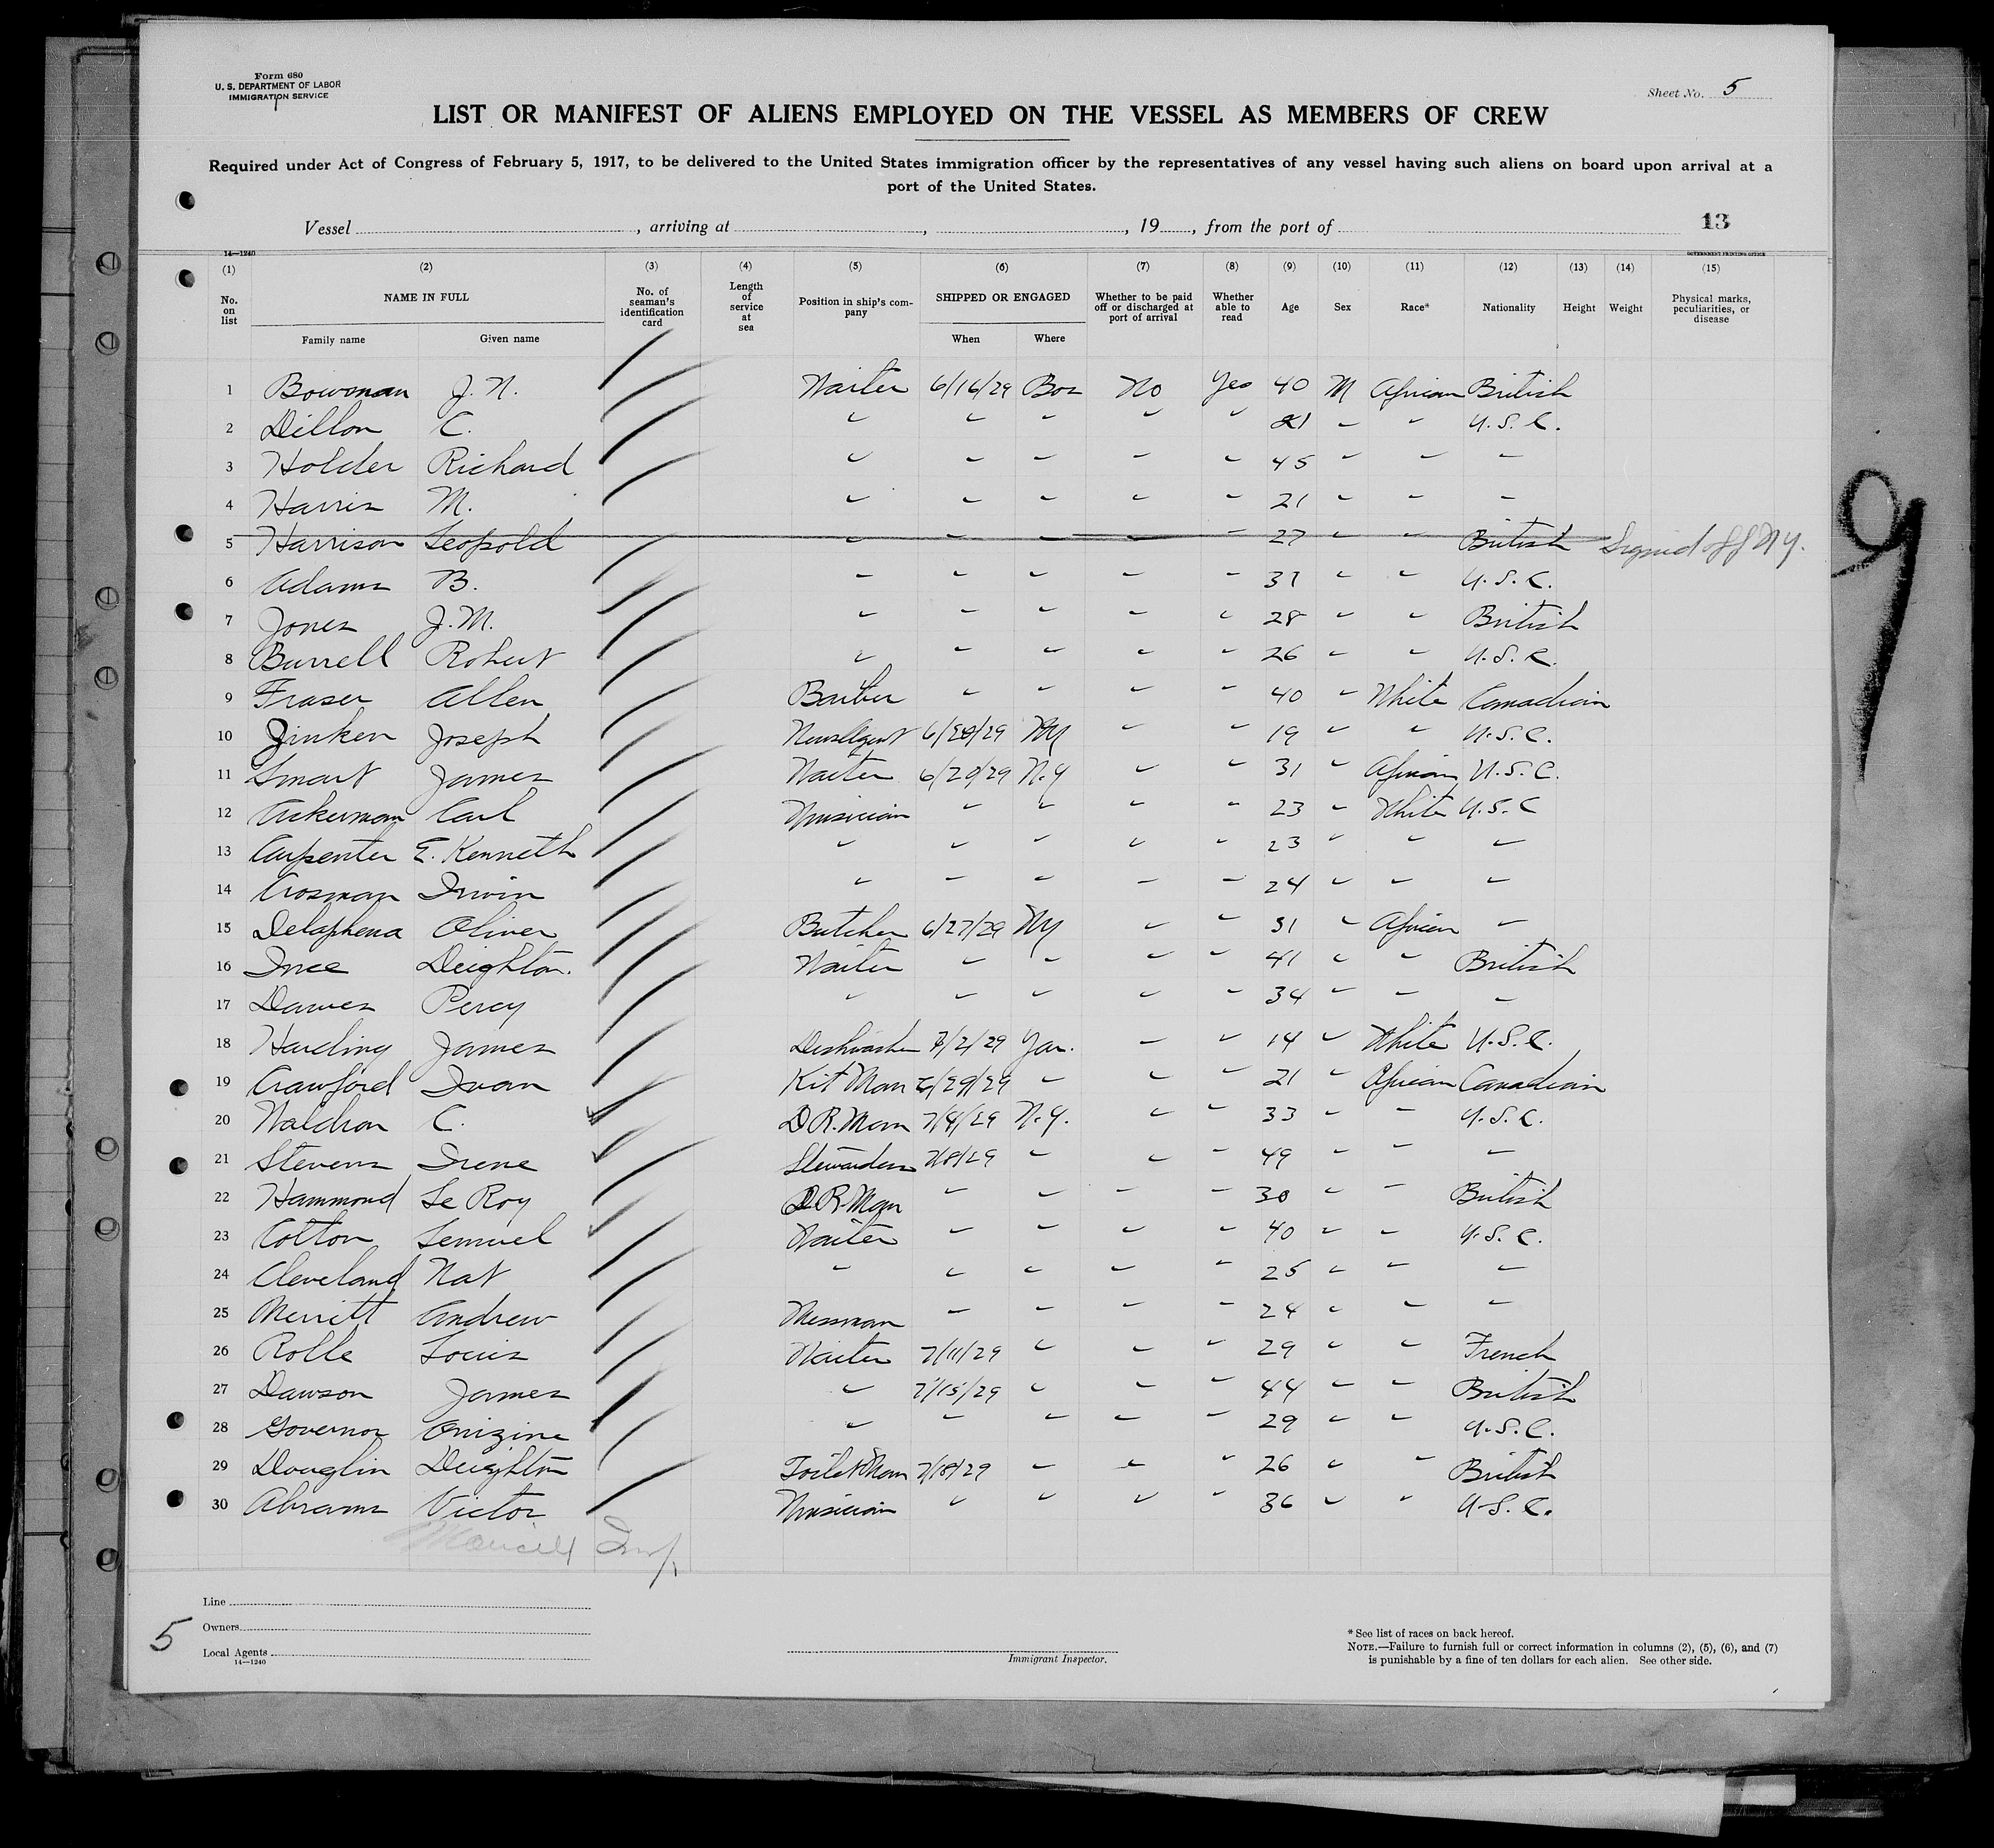 Form 680
U. S. DEPARTMENT OF LABOR
IMMIGRATION SERVICE
Sheet No. 5
LIST OR MANIFEST OF ALIENS EMPLOYED ON THE VESSEL AS MEMBERS OF CREW
Required under Act of Congress of February 5, 1917, to be delivered to the United States immigration officer by the representatives of any vessel having such aliens on board upon arrival at a
port of the United States.
Vessel , arriving at , , 19 , from the port of 13
14—1240 GOVERNMENT PRINTING OFFICE
(1) (2) (3) (4) (5) (6) (7) (8) (9) (10) (11) (12) (13) (14) (15)
No. on list NAME IN FULL No. of seaman's identification card Length of service at sea Position in ship's company SHIPPED OR ENGAGED Whether to be paid off or discharged at port of arrival Whether able to read Age Sex Race* Nationality Height Weight Physical marks, peculiarities, or disease
Family name Given name When Where
1 Bowman J. N. Waiter 6/16/29 Bos No Yes 40 M African British
2 Dillon C. " " " " " 21 " " U.S.C.
3 Holder Richard " " " " " 45 " " "
4 Harris M. " " " " " 21 " " "
5 Harrison Leopold " " " " " 27 " " British Signed off NY.
6 Adams B. " " " " " 37 " " U.S.C.
7 Jones J.M. " " " " " 28 " " British
8 Burrell Robert " " " " " 26 " " U.S.C.
9 Fraser Allen Barber " " " " 40 " White Canadian
10 Zinken Joseph NewsAgent 6/20/29 NY " " 19 " " U.S.C.
11 Smart James Waiter 6/20/29 N.Y " " 31 " African U.S.C.
12 Ackerman Carl Musician " " " " 23 " White U.S.C
13 Carpenter E. Kenneth " " " " " 23 " " "
14 Crosman Irwin " " " " " 24 " " "
15 Delaphena Oliver Butcher 6/27/29 NY " " 31 " African "
16 Ince Deighton. Waiter " " " " 41 " " British
17 Dawes Percy " " " " " 34 " " "
18 Harding James Dishwasher 7/2/29 Yar. " " 14 " White U.S.C.
19 Crawford Ivan Kit Man 6/29/29 " " " 21 " African Canadian
20 Waldron C. D.R.Man 7/4/29 N.Y. " " 33 " " U.S.C.
21 Stevens Irene Stewardess 7/8/29 " " " 49 " " "
22 Hammond Le Roy D.R.Man " " " " 30 " " British
23 Cotton Lemuel Waiter " " " " 40 " " U.S.C.
24 Cleveland Nat " " " " " 25 " " "
25 Merritt Andrew Messman " " " " 24 " " "
26 Rolle Louis Waiter 7/11/29 " " " 29 " " French
27 Dawson James " 7/15/29 " " " 44 " " British
28 Governor Onizine " " " " " 29 " " U.S.C.
29 Douglin Deighton Toilet Man 7/18/29 " " " 26 " " British
30 Abrams Victor Musician " " " " 36 " " U.S.C.
Insp.
9
Line
Owners
Local Agents
14—1240
5
Immigrant Inspector.
* See list of races on back hereof.
NOTE.—Failure to furnish full or correct information in columns (2), (5), (6), and (7)
is punishable by a fine of ten dollars for each alien. See other side.